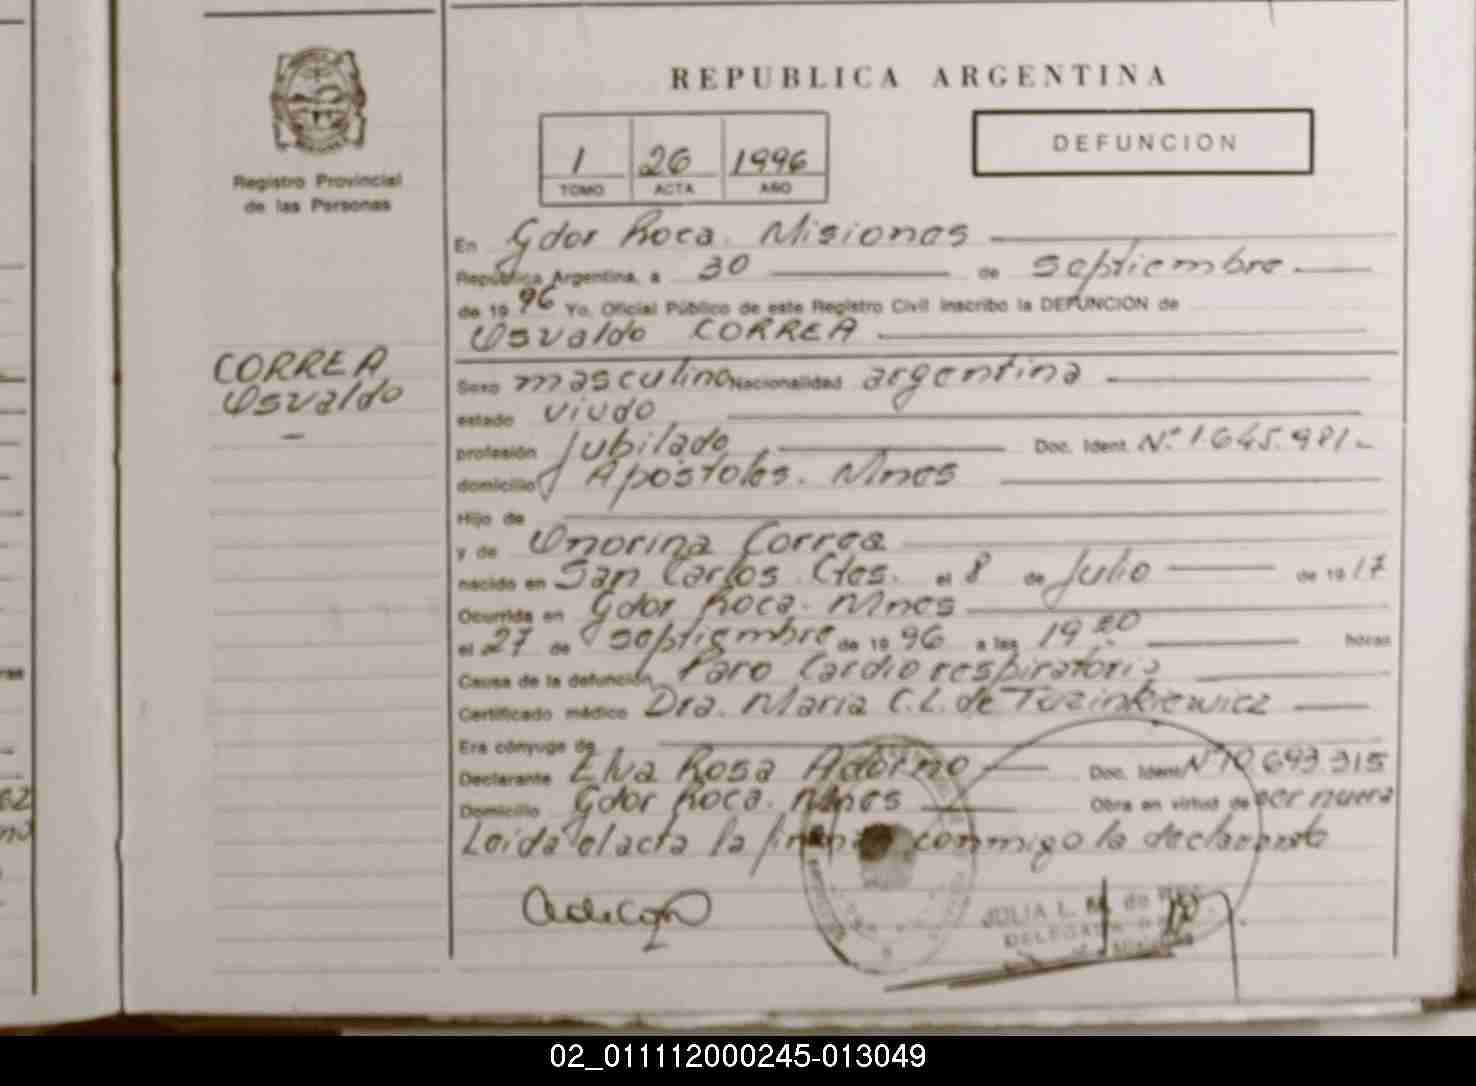 REPUBLICA ARGENTINA
1 26 1996
TOMO ACTA AÑO
DEFUNCION
Registro Provincial
de las Personas
CORREA
Osvaldo
En Gdor Roca. Misiones
República Argentina, a 30 de septiembre.
de 19 96 Yo, Oficial Público de este Registro Civil inscribo la DEFUNCION de
Osvaldo CORREA
Sexo masculino Nacionalidad argentina
estado viudo
profesión Jubilado Doc. Ident. Nº 1.645.981.-
domicilio Apóstoles. Mnes
Hijo de
y de Onorina Correa
nacido en San Carlos. Ctes. el 8 de Julio de 19 17
Ocurrida en Gdor Roca. Mnes
el 27 de septiembre de 19 96 a las 19 horas
Causa de la defunción Paro Cardio respiratorio
Certificado médico Dra. Maria C.L. de Tuzinkiewicz
Era cónyuge de
Declarante Elva Rosa Adorno Doc. Ident. Nº 10.693.315
Domicilio Gdor Roca. Mnes Obra en virtud de ser nuera
Leida el acta la firma conmigo la declarante
JULIA L. M. de
02_011112000245-013049